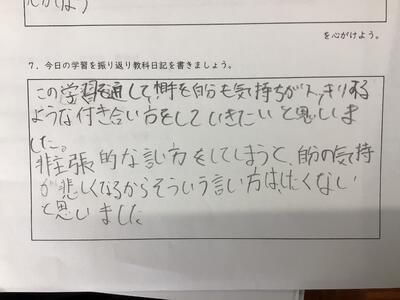 を心がけよう。
7．今日の学習を振り返り教科日記を書きましょう。
この学習を通して、相手を自分も気持ちがスッキリする
ような付き合い方をしていきたいと思いま
した。
非主張的な言い方をしてしまうと、自分の気持
が悲しくなるからそういう言い方は、したくない
と思いました